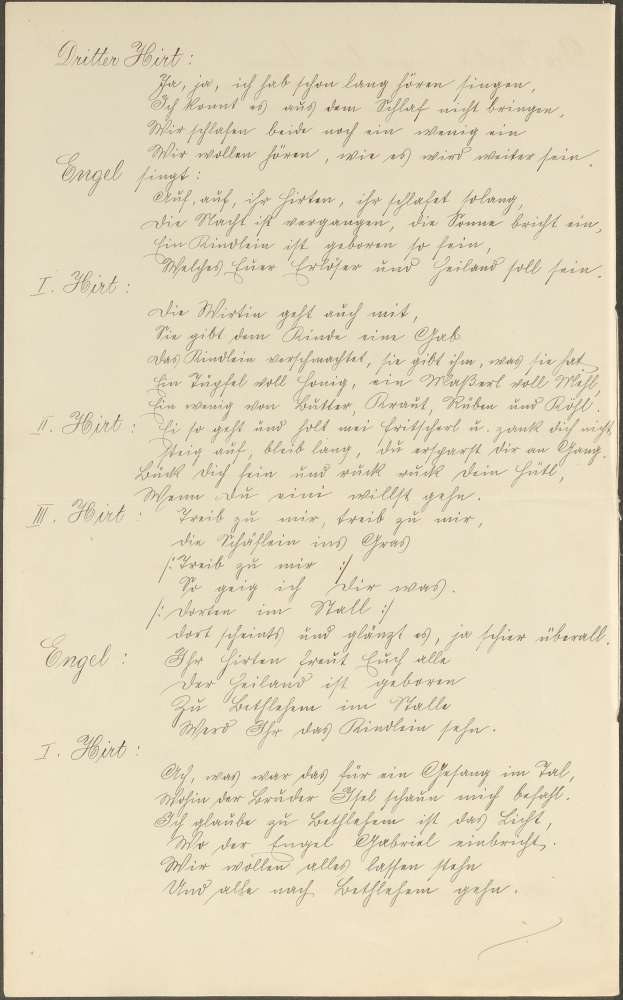 Dritter Hirt:
Ja, ja, ich hab schon lang hören singen,
Ich konnt es aus dem Schlaf nicht bringen,
Wir schlafen beide noch ein wenig ein
Wir wollen hören, wie es wird weiter sein.
Engel singt:
Auf, auf, ihr Hirten, ihr schlafet solang,
Die Nacht ist vergangen, die Sonne bricht ein,
Ein Kindlein ist geboren so fein,
Welches Euer Erlöser und Heiland soll sein.
I. Hirt:
Die Wirtin geht auch mit,
Sie gibt dem Kinde eine Gab
Das Kindlein verschmachtet, sie gibt ihm, was sie hat
Ein Tüpfel voll Honig, ein Maßerl voll Mehl,
Ein wenig von Butter, Kraut, Rüben und Köhl.
II. Hirt: Ei so geht und holt mei Fritscherl u. zank dich nicht
Steig auf, bleib lang, du ersparst dir an Gang.
Bück dich fein und ruck ruck dein Hütl,
Wenn du eini willst gehn.
III. Hirt: Treib zu mir, treib zu mir,
Die Schäflein ins Gras
/: Treib zu mir :/
So geig ich Dir was.
/: Dorten im Stall :/
Dort scheints und glänzt es, ja schier überall.
Engel: Ihr Hirten freut Euch alle
Der Heiland ist geboren
Zu Bethlehem im Stalle
Werd Ihr das Kindlein sehn.
I. Hirt:
Ach, was war das für ein Gesang im Tal,
Wohin der Bruder Isel schaun mich befahl.
Ich glaube zu Bethlehem ist das Licht,
Wo der Engel Gabriel einbricht.
Wir wollen alles lassen stehn
Und alle nach Bethlehem gehn.